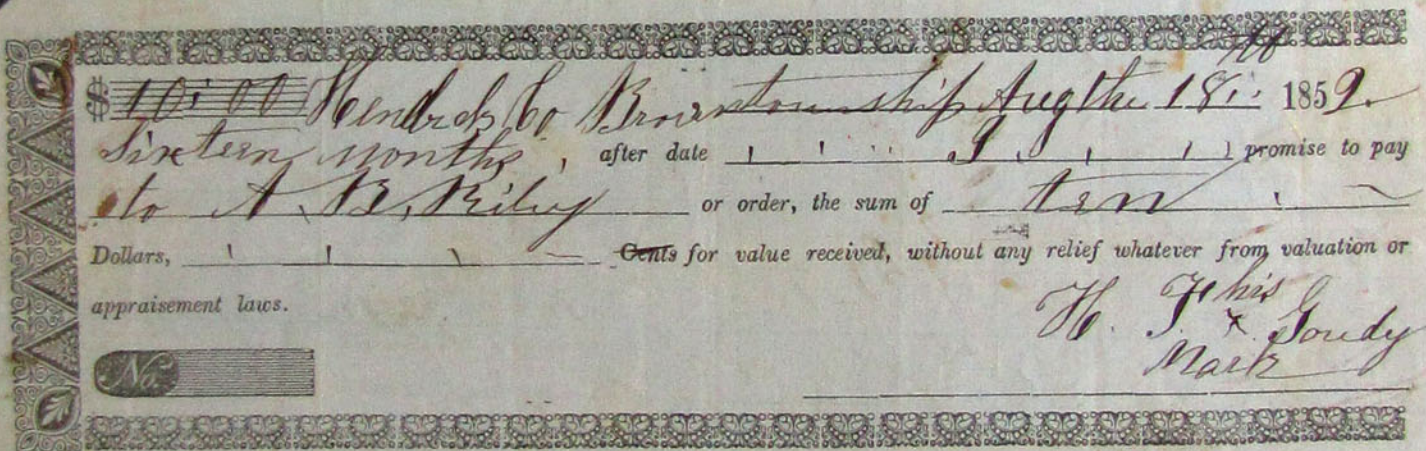 $ 10.00 Hendrds Co Brown township Aug the 18th 1859.
Sixteen months, after date I promise to pay
to A. B. Riley or order, the sum of ten
Dollars, Cents for value received, without any relief whatever from valuation or
appraisement laws.
his
H. F. x Goudy
Mark
No.